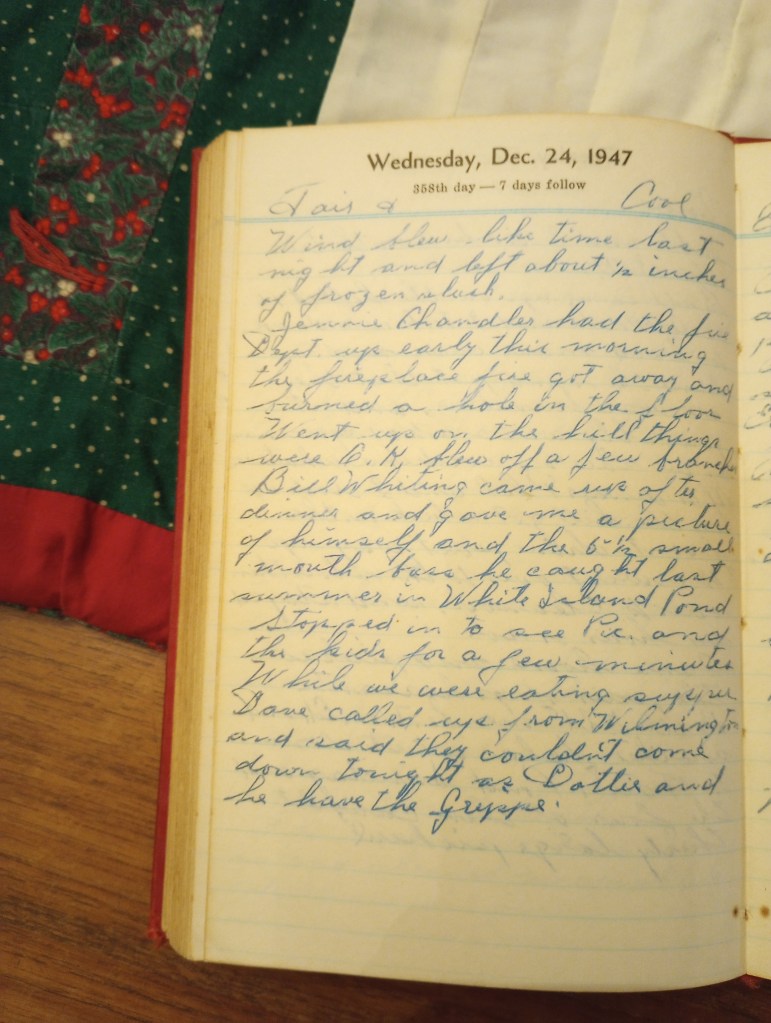 Wednesday, Dec. 24, 1947
358th day — 7 days follow
Fair & Cool
Wind blew like time last
night and left about ½ inches
of frozen slush.
Jennie Chandler had the fire
Dept. up early this morning
the fireplace fire got away and
burned a hole in the floor
Went up on the hill things
were O.K blew off a few branches
Bill Whiting came up after
dinner and gave me a picture
of himself and the 6½ small
mouth bass he caught last
summer in White Island Pond
Stopped in to see Pic. and
the kids for a few minutes
While we were eating supper
Dave called up from Wilmington
and said they couldn't come
down tonight as Dottie and
he have the Grippe.